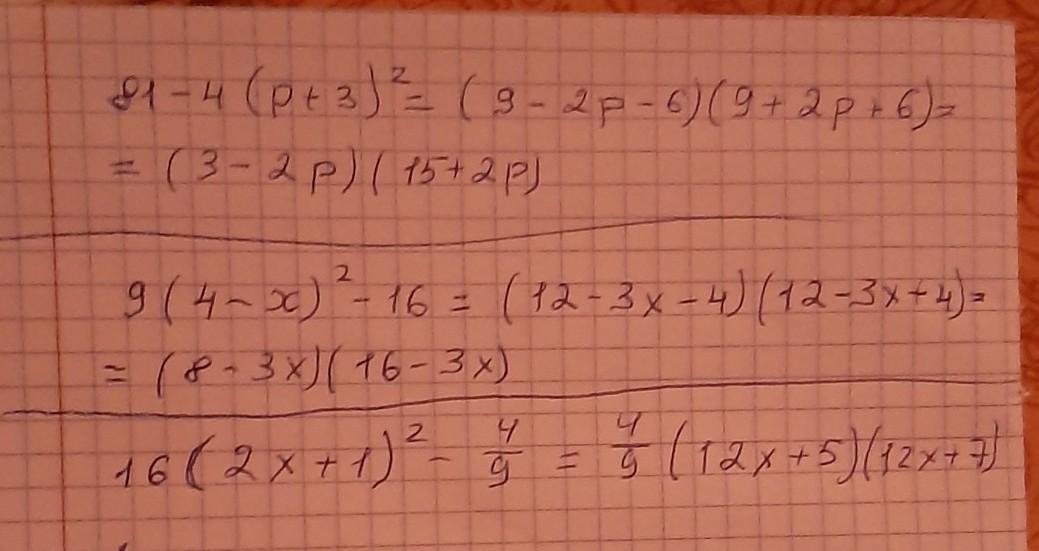 81 - 4 (p + 3)² = (9 - 2p - 6)(9 + 2p + 6) =
= (3 - 2p)(15 + 2p)
9(4 - x)² - 16 = (12 - 3x - 4)(12 - 3x + 4) =
= (8 - 3x)(16 - 3x)
16(2x + 1)² - 4/9 = 4/9 (12x + 5)(12x + 7)